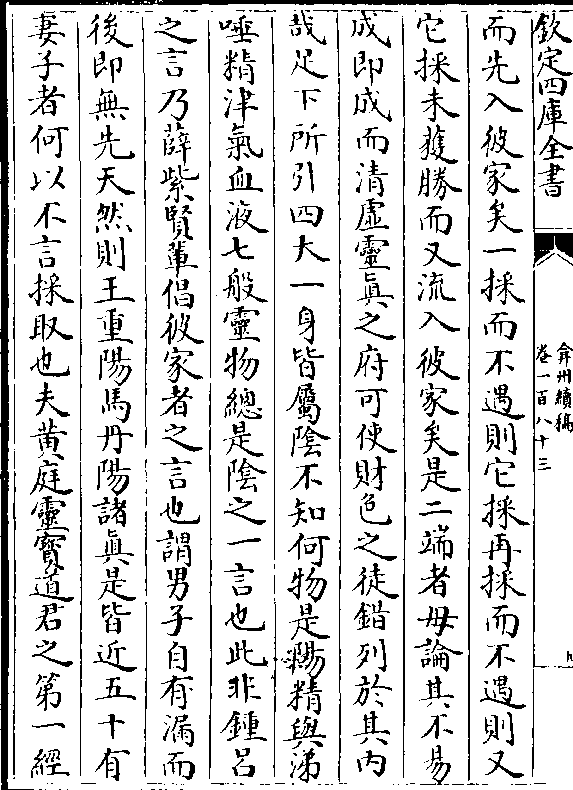 欽定四庫全書
弇州續稿
卷一百八十三
九
而先入彼家矣一採而不遇則它採再採而不遇則又
它採未獲勝而又流入彼家矣是二端者毋論其不易
成即成而清虛靈真之府可使財色之徒錯列於其内
哉足下所引四大一身皆屬隂不知何物是陽精與涕
唾精津氣血液七般靈物總是隂之一言也此非鍾吕
之言乃薛紫賢輩倡彼家者之言也謂男子自有漏而
後即無先天然則王重陽馬丹陽諸真是皆近五十有
妻子者何以不言採取也夫黄庭靈寳道君之第一經